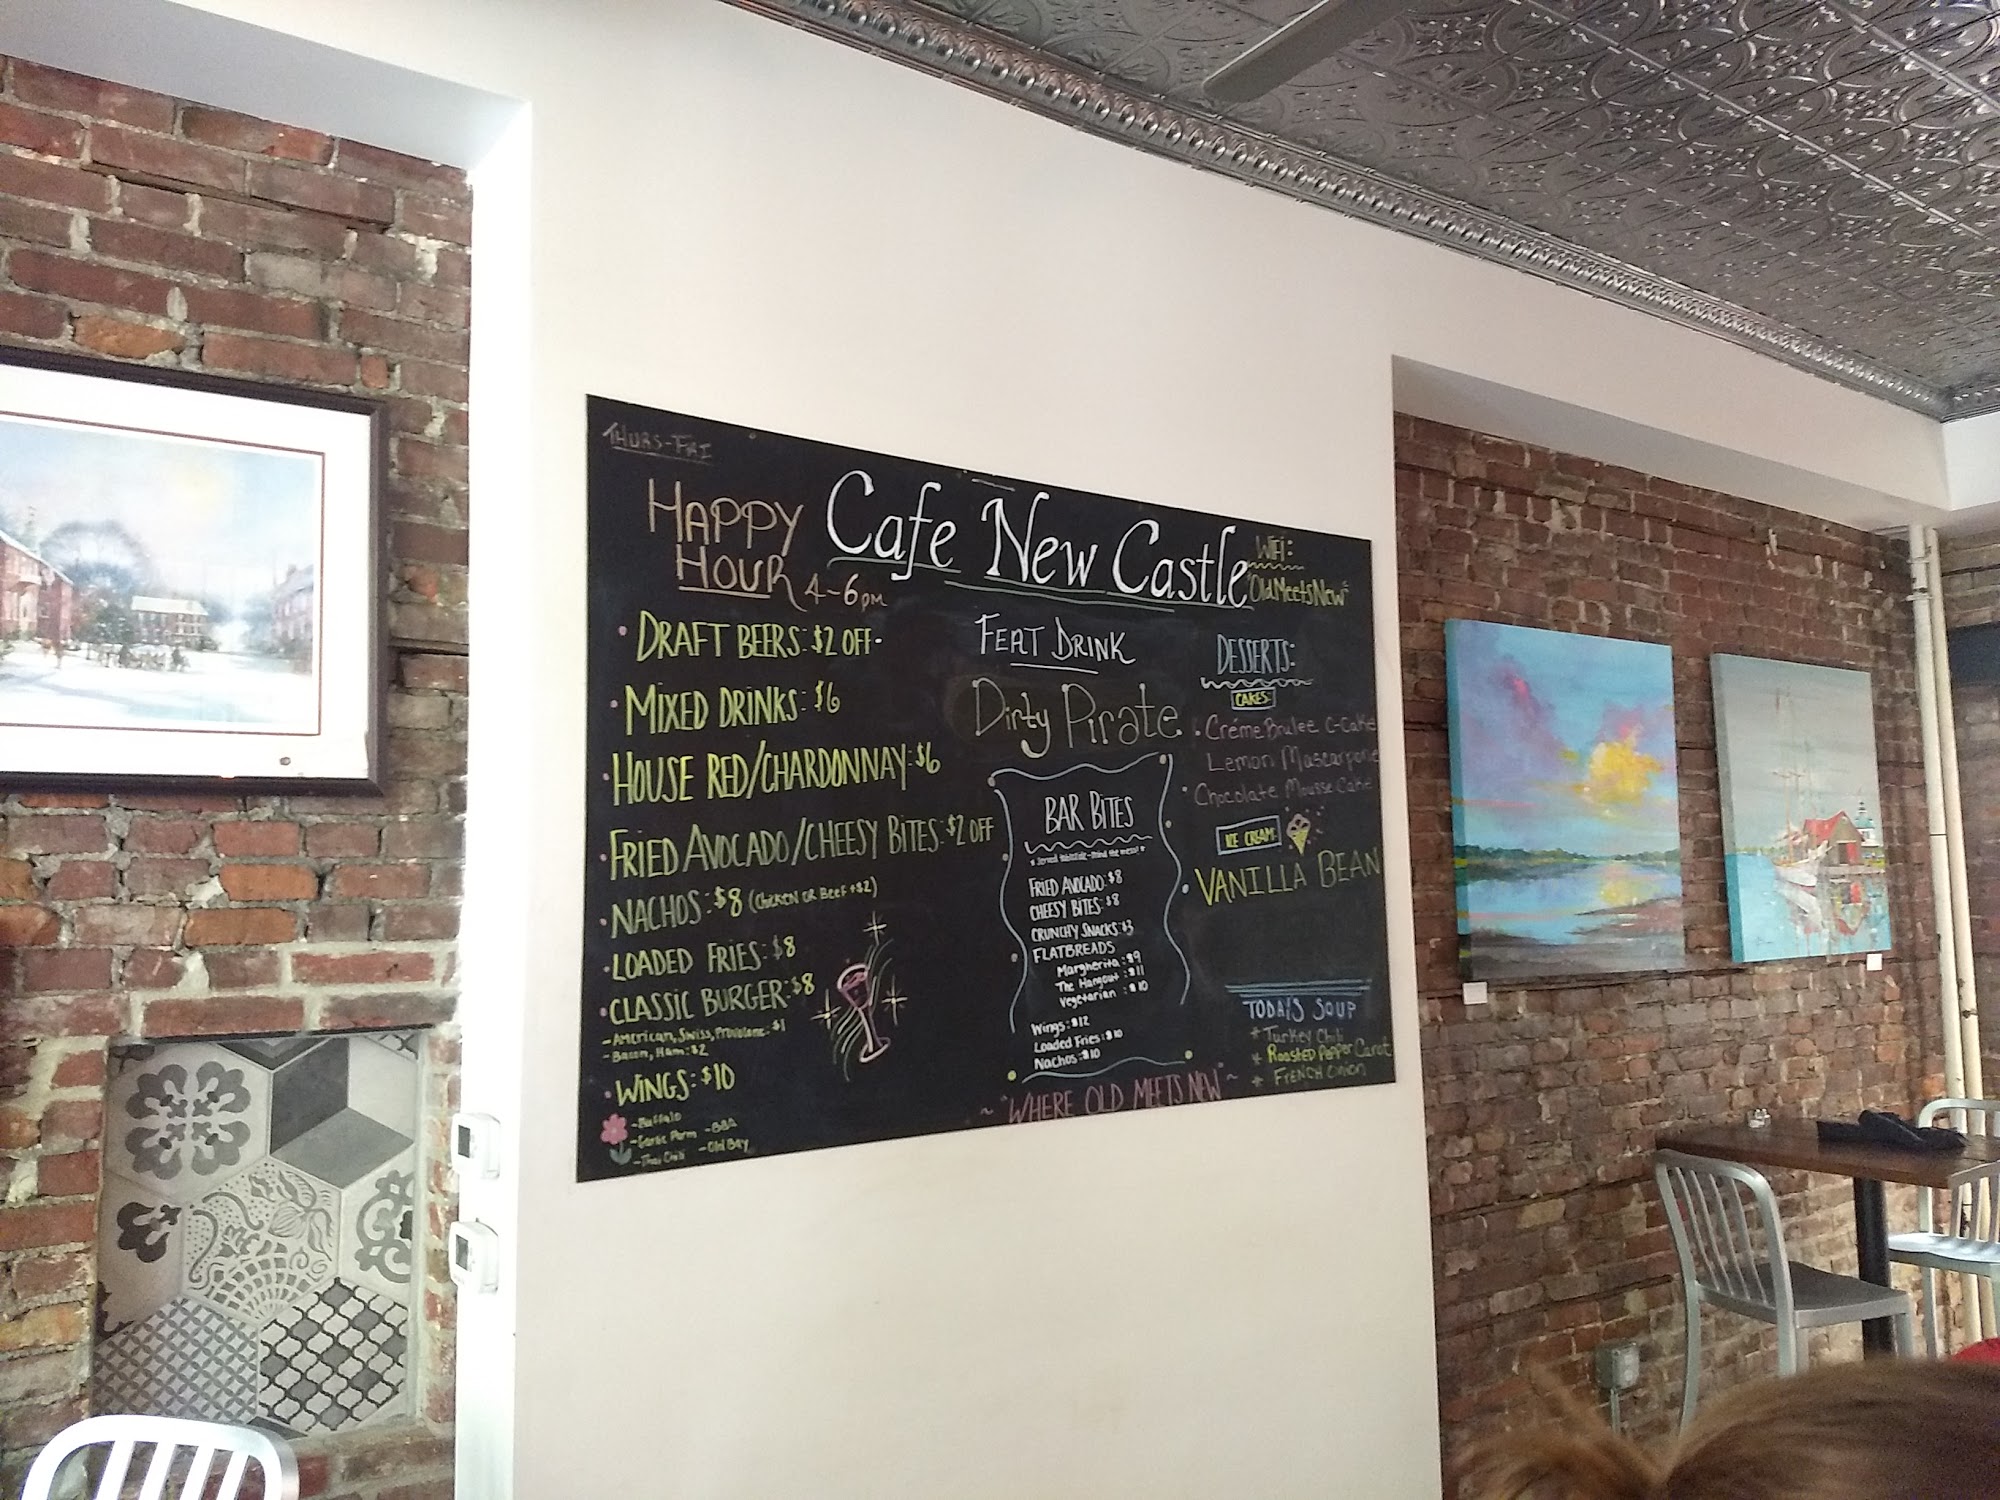 THURS-FRI
HAPPY
HOUR 4-6pm
Cafe New Castle
WIFI:
"OldMeetsNew"
• DRAFT BEERS: $2 OFF•
• MIXED DRINKS: $6
• HOUSE RED/CHARDONNAY: $6
• FRIED AVOCADO/CHEESY BITES: $2 OFF
• NACHOS: $8 (CHICKEN OR BEEF +$2)
• LOADED FRIES: $8
• CLASSIC BURGER: $8
- American, Swiss, Provolone: $1
- Bacon, Ham: $2
• WINGS: $10
- Buffalo
- Garlic Parm - BBQ
- Thai Chili - Old Bay
FEAT DRINK
Dirty Pirate
BAR BITES
FRIED AVOCADO: $8
CHEESY BITES: $8
CRUNCHY SNACKS: $3
FLATBREADS
Margherita: $9
The Hangout: $11
Vegetarian: $10
Wings: $12
Loaded Fries: $10
Nachos: $10
DESSERTS:
CAKES:
• Créme Brulee C-Cake
Lemon Mascarpone
• Chocolate Mousse Cake
ICE CREAM:
• VANILLA BEAN
TODAY'S SOUP
* Turkey Chili
* Roasted Pepper Carot
* FRENCH Onion
~ "WHERE OLD MEETS NEW" ~